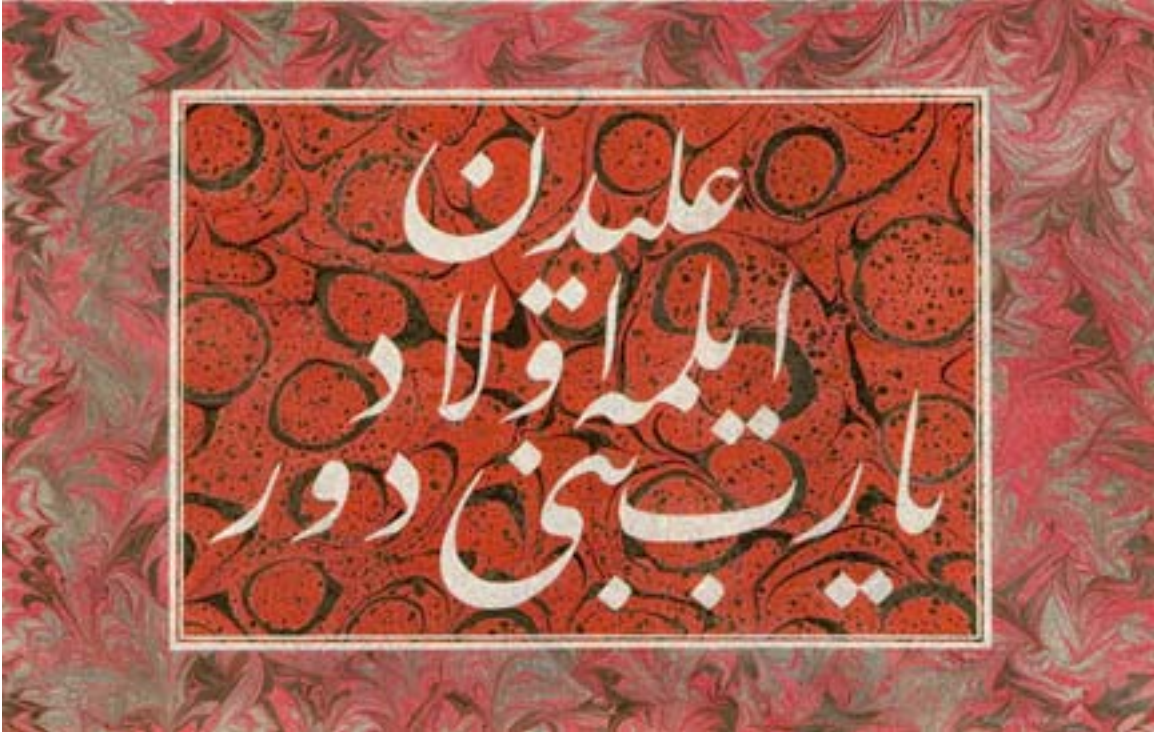 یارب بنی دور
ایلمه اولاد
علیدن